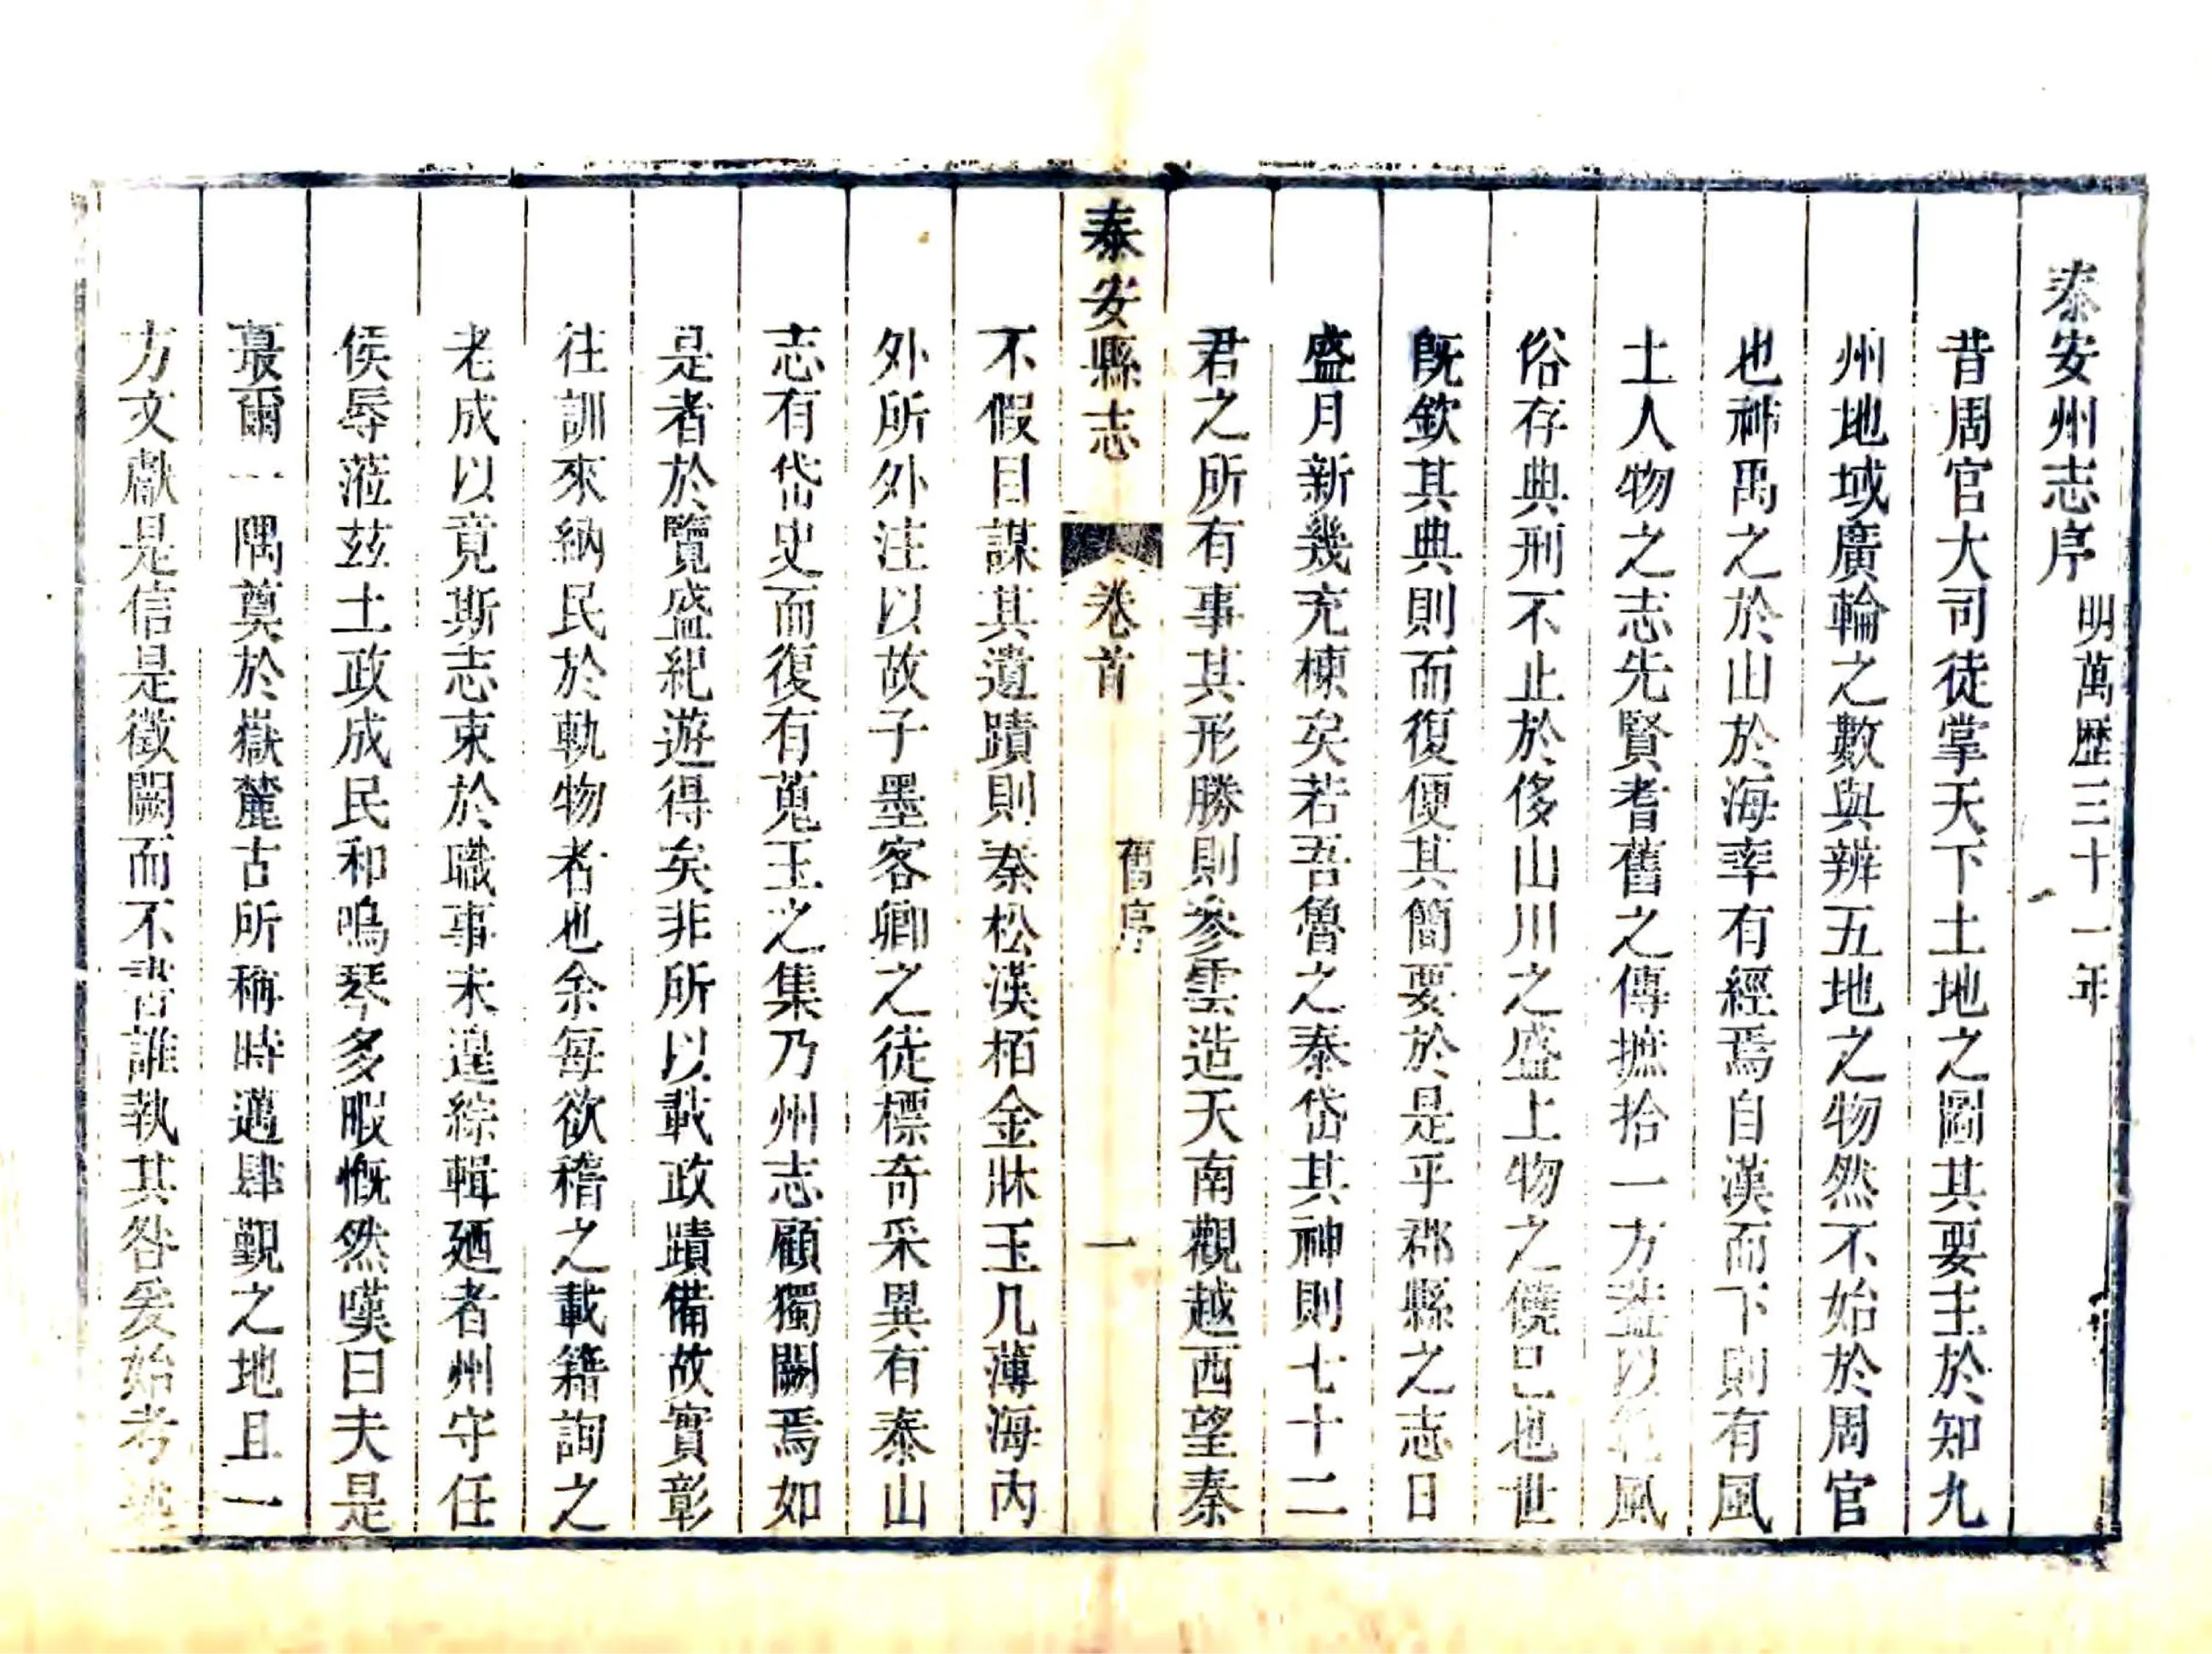 泰安州志序 明萬歷三十一年
昔周官大司徒掌天下土地之圖其要主於知九
州地域廣輪之數與辨五地之物然不始於周官
也神禹之於山於海率有經焉自漢而下則有風
土人物之志先賢耆舊之傳摭拾一方蓋以風
俗存典刑不止於侈山川之盛上物之饒已也世
旣欽其典則而復便其簡要於是乎郡縣之志日
盛月新幾充棟矣若吾魯之泰岱其神則七十二
君之所有事其形勝則參雲造天南觀越西望秦
泰安縣志 卷首 舊序 一
不假目謀其遺蹟則秦松漢栢金牀玉几薄海內
外所外注以故子墨客卿之徒標奇采異有泰山
志有岱史而復有蒐玉之集乃州志顧獨闕焉如
是者於覽盛紀遊得矣非所以載政蹟備故實彰
往訓來納民於軌物者也余每欲稽之載籍詢之
老成以竟斯志束於職事未遑綜輯廼者州守任
侯辱蒞茲土政成民和鳴琴多暇慨然嘆曰夫是
蕞爾一隅奠於嶽麓古所稱時邁肆覲之地且一
方文獻是信是徵闕而不書誰執其咎爰始考